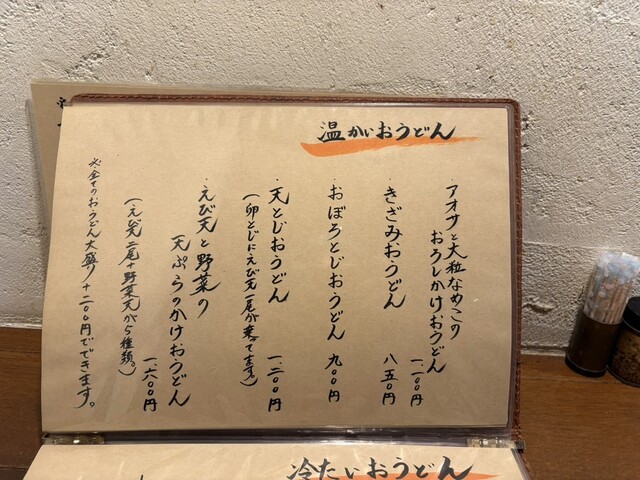 温かいおうどん
・アオサと大粒なめこの
おろしかけおうどん
一、一〇〇円
・きざみおうどん
八五〇円
・おぼろとじおうどん
九〇〇円
・天とじおうどん
一、二〇〇円
(卵とじにえび天一尾が乗ってます)
・えび天と野菜の
天ぷらのかけおうどん
一、六〇〇円
(えび天二尾+野菜天が5種類。)
※全てのおうどん大盛り+二〇〇円でできます。
冷たいおうどん